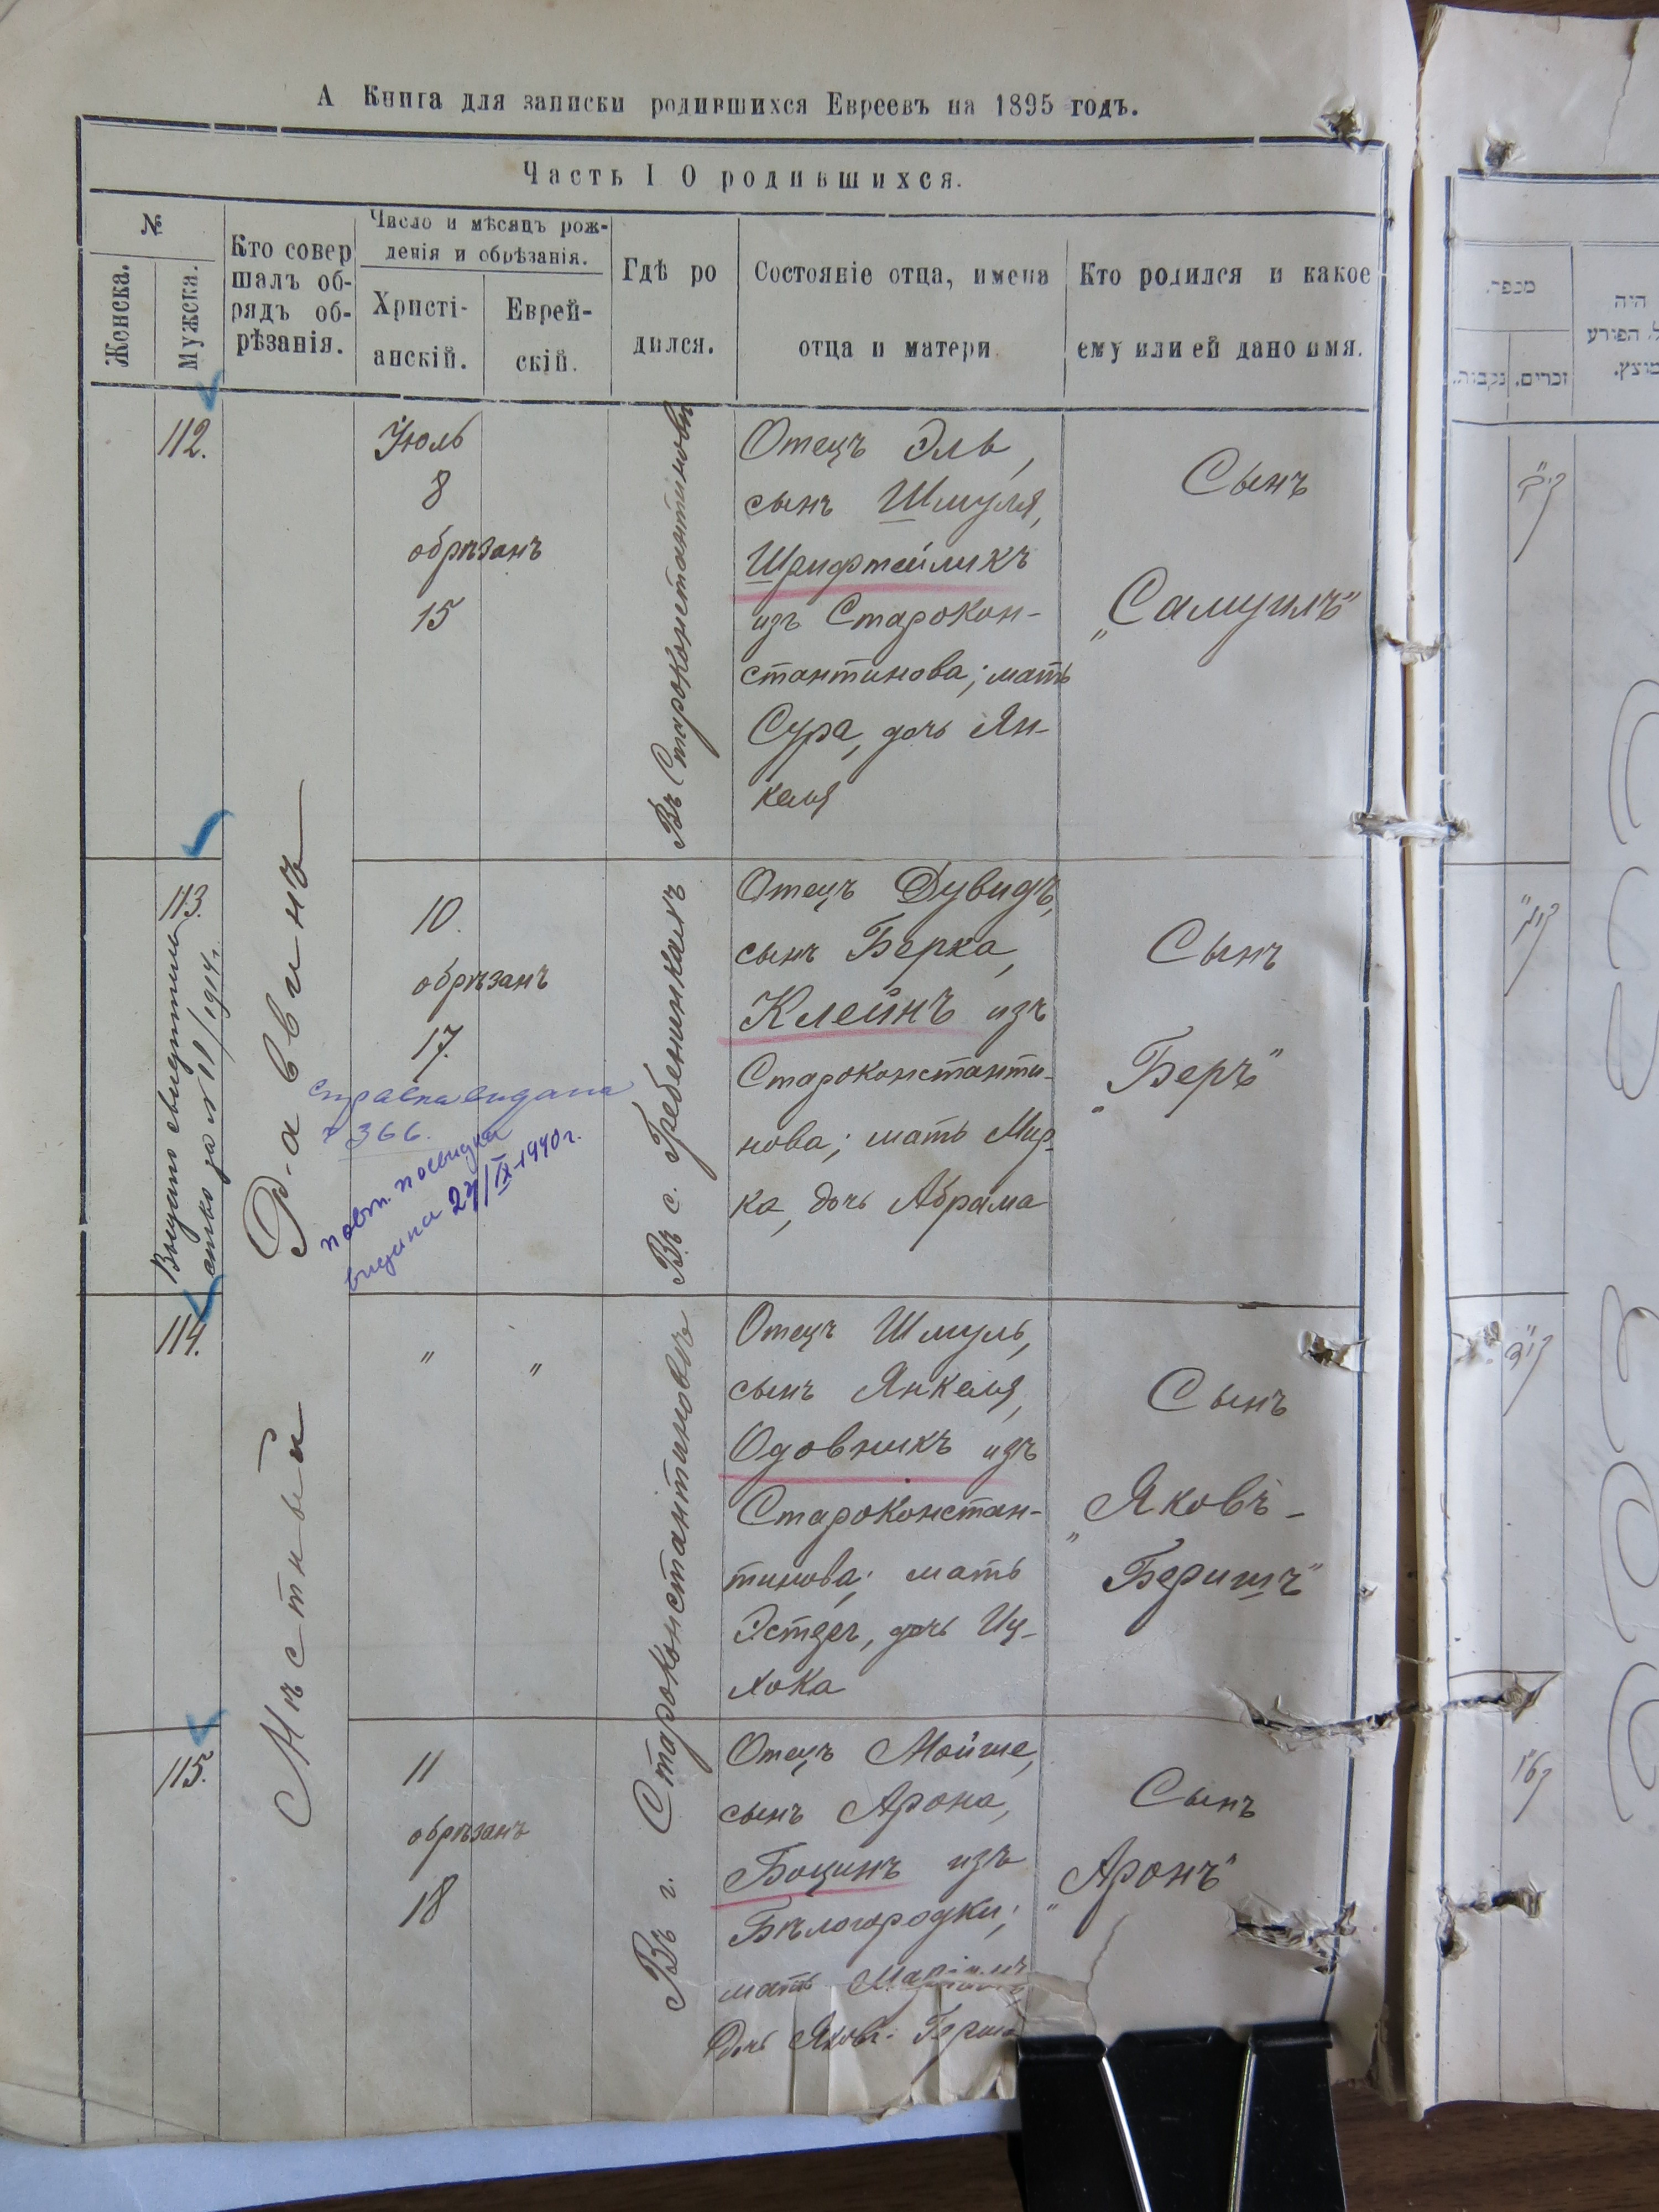 А Книга для записки родившихся Евреевъ на 1895 годъ.
Часть I О родившихся.
№
Женска.
Мужска.
Кто совер
шалъ об-
рядъ об-
рѣзанія.
Число и мѣсяцъ рож-
денія и обрѣзанія.
Христі-
анскій.
Еврей-
скій.
Гдѣ ро
дился.
Состояніе отца, имена
отца и матери
Кто родился и какое
ему или ей дано имя.
Мѣстный Раввинъ
112.
Іюль
8
обрѣзанъ
15
Въ Староконстантиновѣ
Отецъ Эль,
сынъ Шмуля,
Шрифтейликъ
изъ Старокон-
стантинова; мать
Сура, дочь Ян-
келя
Сынъ
„Самуилъ"
113.
Выдано свидѣтель
ство за № 11/1914 г.
10
обрѣзанъ
17.
справка видана
№ 366.
повт. посвидка
видана 27/IX-1940 г.
Въ с. Гребенинкахъ
Отецъ Дувидъ,
сынъ Берка,
Клейнъ изъ
Староконстанти-
нова; мать Мир-
ка, дочь Абрама
Сынъ
„Беръ"
114.
" "
Въ г. Староконстантиновѣ
Отецъ Шмуль,
сынъ Янкеля,
Одовникъ изъ
Староконстан-
тинова; мать
Эстер, дочь Иц-
хока
Сынъ
„Яковъ-
Беришъ"
115.
11
обрѣзанъ
18
Отецъ Мойше,
сынъ Арона,
Боцинъ изъ
Бѣлогородки;
мать
дочь
Сынъ
„Аронъ"
מספר.
זכרים.
נקבות.
היה
הפורע
מוצץ.
קי"ב
קי"ג
קי"ד
קט"ו